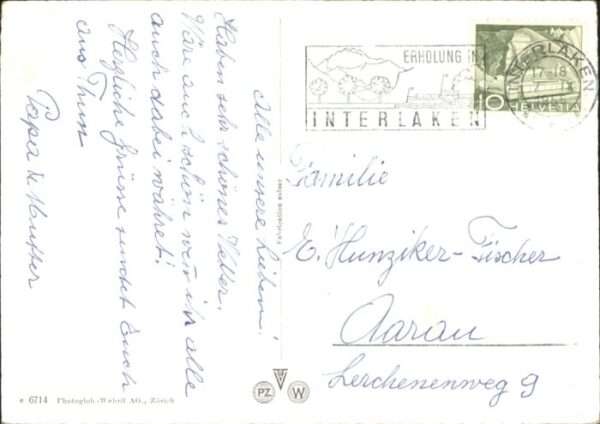 Alle unsere Lieben!
Haben sehr schönes Wetter.
Wäre auch schön wenn ihr alle
auch dabei währet!
Herzliche Grüsse sendet Euch
aus Thun
Papa & Mutter
ERHOLUNG IN
INTERLAKEN
INTERLAKEN
17-18
10
HELVETIA
Familie
E. Hunziker-Fischer
Aarau
Lerchenenweg 9
PZ
W
e 6714 Photoglob-Wehrli AG., Zürich